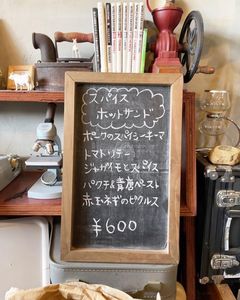 スパイス
ホットサンド
ポークのスパイシーキーマ
トマトソテー
ジャガイモとスパイス
パクチー&青唐ペースト
赤玉ネギのピクルス
¥600